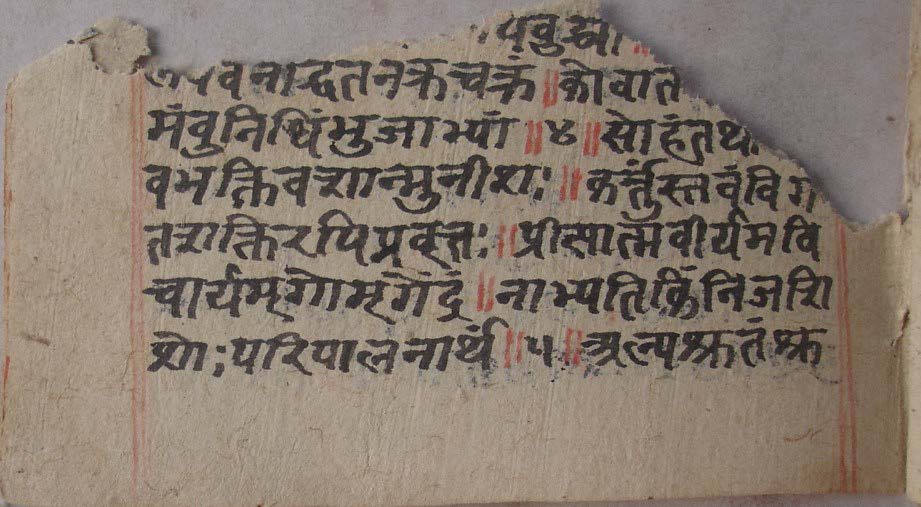 पवुद्ध्या
पवनोद्धतनक्रचक्रं ॥ को वा त
मंवुनिधिंभुजाभ्यां ॥ ४ ॥ सोहंतथा
वभक्तिवशान्मुनीश: ॥ कर्त्तुंस्तवंविग
तशक्तिरपिप्रवृत्त: ॥ प्रीत्सात्मवीर्यमवि
चार्यमृगोमृगेंद्रं ॥ नाभ्येतिकिंनिजशि
शो: परिपालनार्थं ॥ ५ ॥ अल्पश्रुतंश्रु